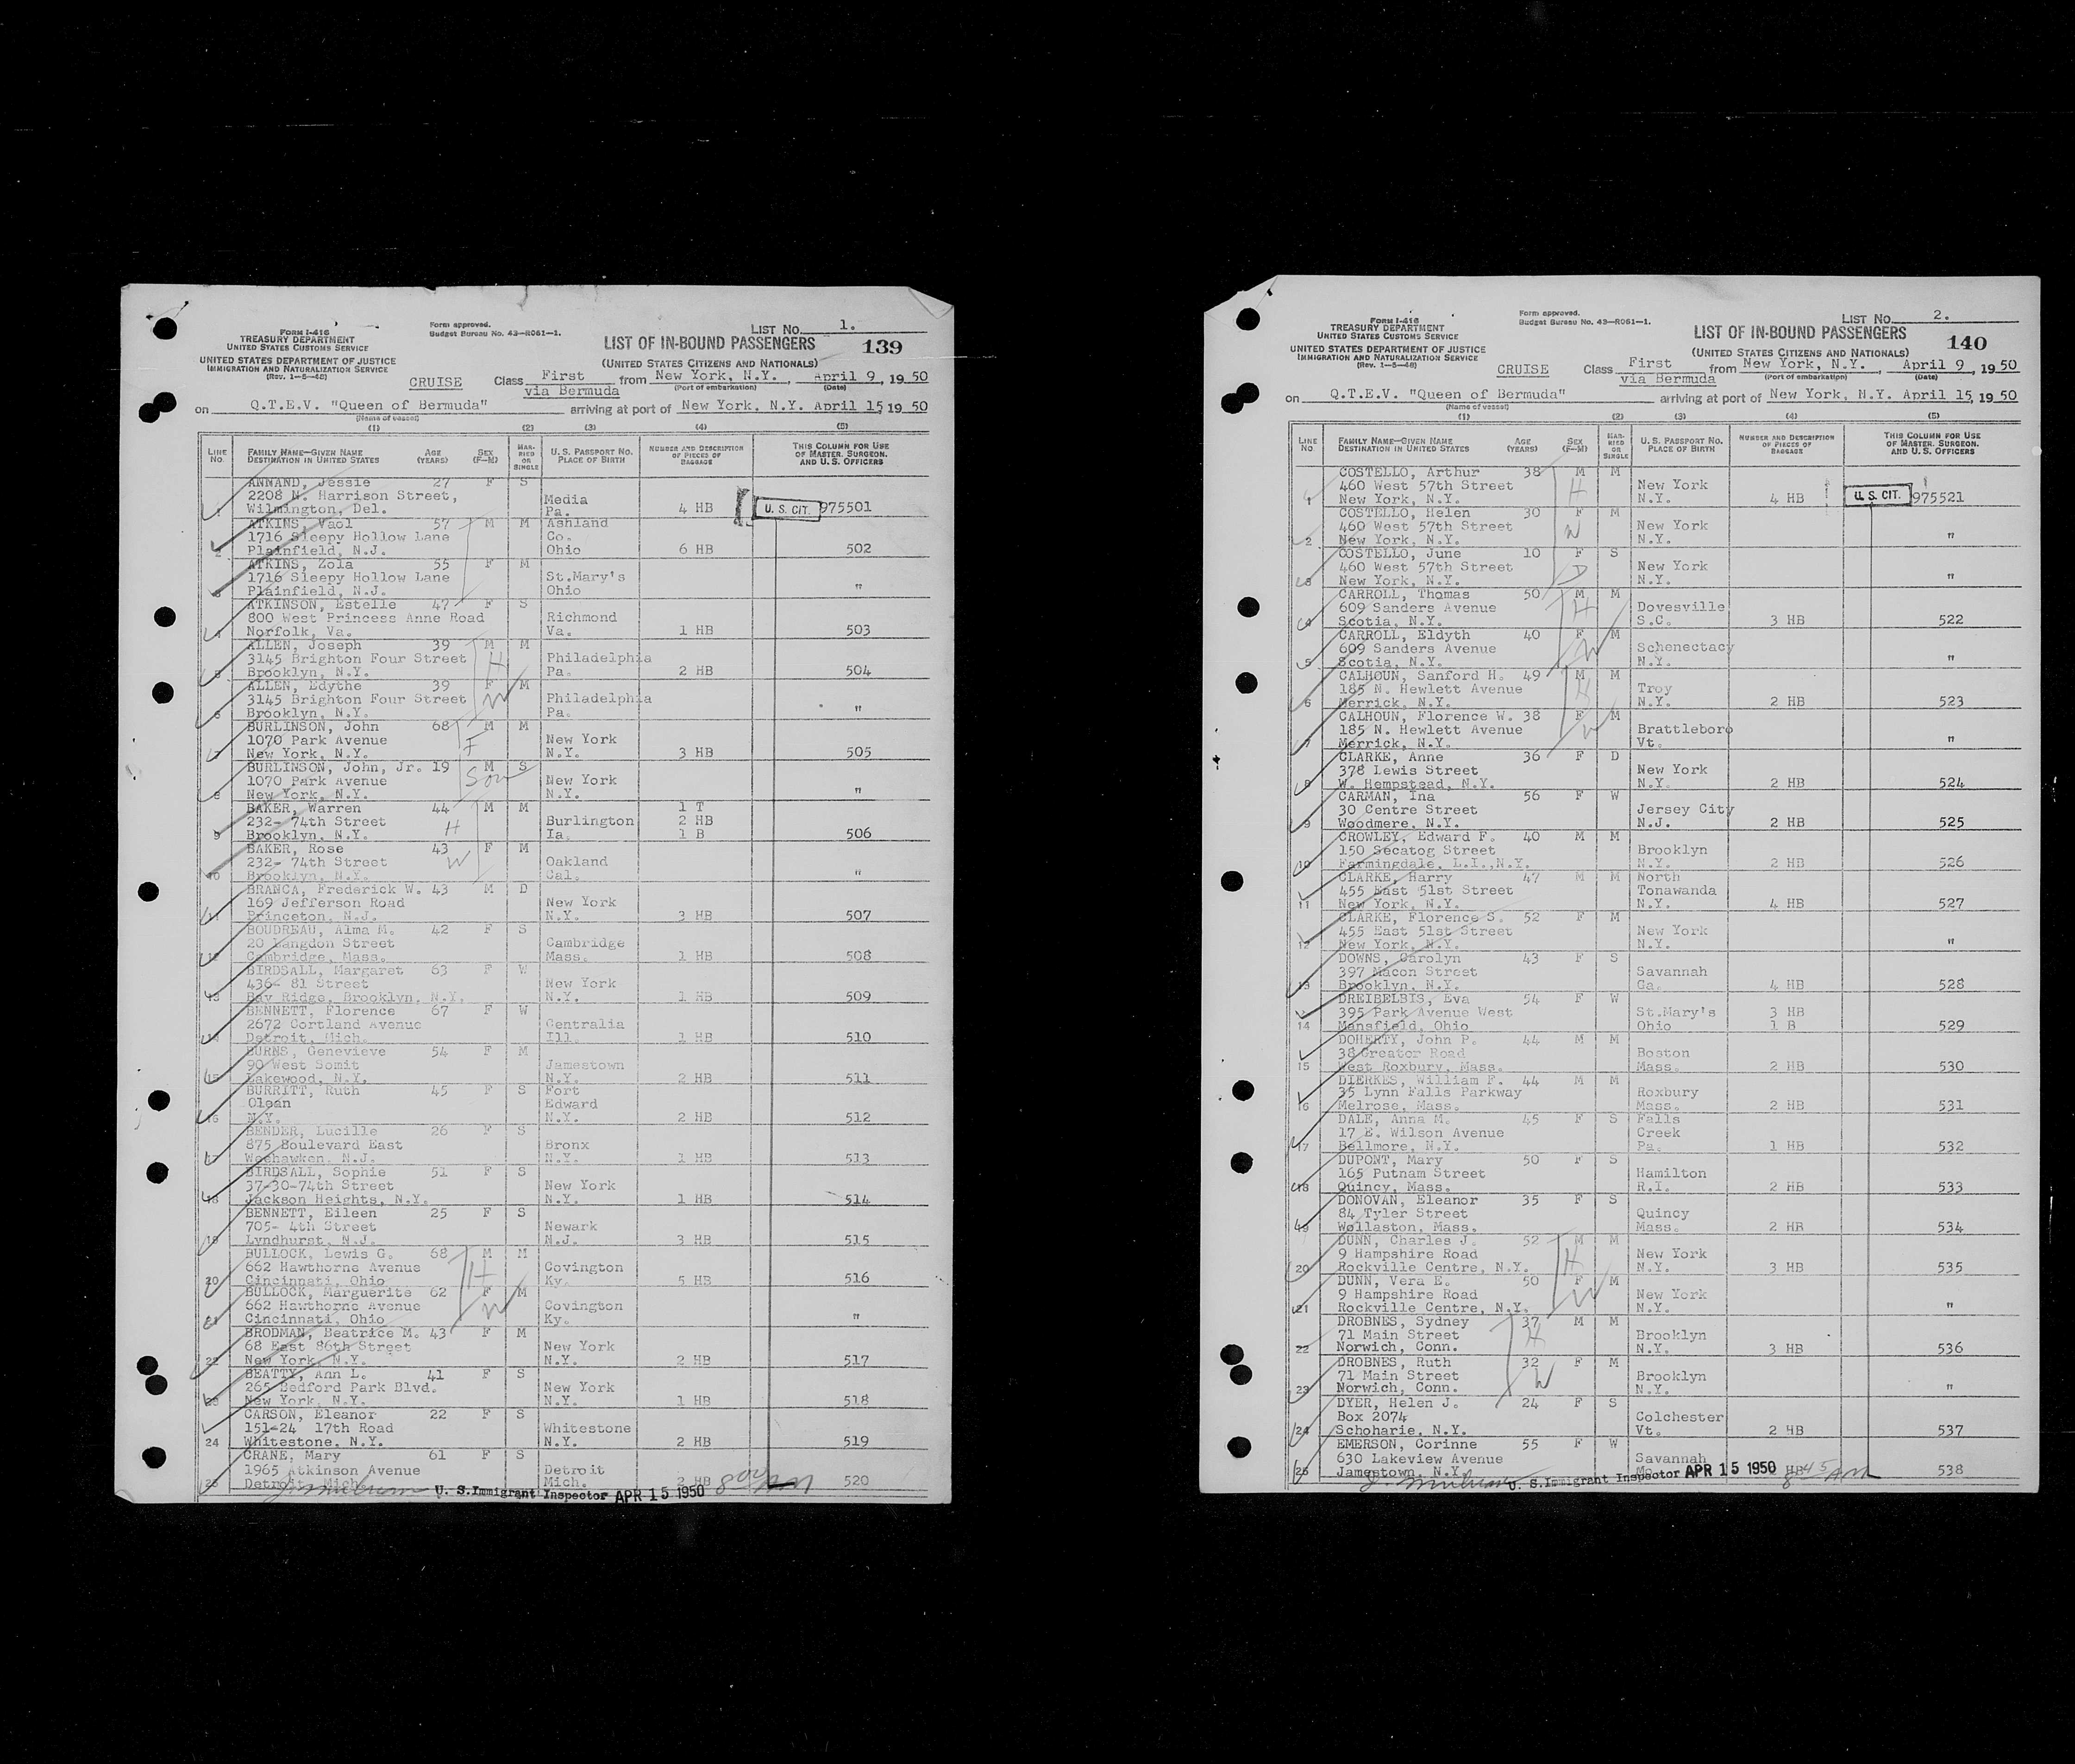 FORM I-416
TREASURY DEPARTMENT
UNITED STATES CUSTOMS SERVICE
UNITED STATES DEPARTMENT OF JUSTICE
IMMIGRATION AND NATURALIZATION SERVICE
(Rev. 1-5-48)
Form approved.
Budget Bureau No. 43-R061-1.
LIST No. 1.
LIST OF IN-BOUND PASSENGERS 139
(UNITED STATES CITIZENS AND NATIONALS)
CRUISE Class First from New York, N.Y., April 9, 1950
via Bermuda (Port of embarkation) (Date)
on Q.T.E.V. "Queen of Bermuda" arriving at port of New York, N.Y. April 15, 1950
(Name of vessel)
(1) (2) (3) (4) (5)
LINE No. FAMILY NAME—GIVEN NAME DESTINATION IN UNITED STATES AGE (YEARS) SEX (F-M) MARRIED OR SINGLE U. S. PASSPORT NO. PLACE OF BIRTH NUMBER AND DESCRIPTION OF PIECES OF BAGGAGE THIS COLUMN FOR USE OF MASTER, SURGEON, AND U. S. OFFICERS
ANNAND, Jessie 27 F S
2208 N. Harrison Street, Media
1 Wilmington, Del. Pa. 4 HB U. S. CIT. 975501
ATKINS, Vaol 57 M M Ashland
1716 Sleepy Hollow Lane Co.
2 Plainfield, N.J. Ohio 6 HB 502
ATKINS, Zola 55 F M
1716 Sleepy Hollow Lane St.Mary's
3 Plainfield, N.J. Ohio "
ATKINSON, Estelle 47 F S
800 West Princess Anne Road Richmond
4 Norfolk, Va. Va. 1 HB 503
ALLEN, Joseph 39 M M
3145 Brighton Four Street H Philadelphia
5 Brooklyn, N.Y. Pa. 2 HB 504
ALLEN, Edythe 39 F M
3145 Brighton Four Street W Philadelphia
6 Brooklyn, N.Y. Pa. "
BURLINSON, John 68 M M
1070 Park Avenue F New York
7 New York, N.Y. N.Y. 3 HB 505
BURLINSON, John, Jr. 19 M S
1070 Park Avenue Son New York
8 New York, N.Y. N.Y. "
BAKER, Warren 44 M M 1 T
232- 74th Street H Burlington 2 HB
9 Brooklyn, N.Y. Ia. 1 B 506
BAKER, Rose 43 F M
232- 74th Street W Oakland
10 Brooklyn, N.Y. Cal. "
BRANCA, Frederick W. 43 M D
169 Jefferson Road New York
11 Princeton, N.J. N.Y. 3 HB 507
BOUDREAU, Alma M. 42 F S
20 Langdon Street Cambridge
12 Cambridge, Mass. Mass. 1 HB 508
BIRDSALL, Margaret 63 F W
436- 81 Street New York
13 Bay Ridge, Brooklyn, N.Y. N.Y. 1 HB 509
BENNETT, Florence 67 F W
2672 Cortland Avenue Centralia
14 Detroit, Mich. Ill. 1 HB 510
BURNS, Genevieve 54 F M
90 West Somit Jamestown
15 Lakewood, N.Y. N.Y. 2 HB 511
BURRITT, Ruth 45 F S Fort
Olean Edward
16 N.Y. N.Y. 2 HB 512
BENDER, Lucille 26 F S
875 Boulevard East Bronx
17 Weehawken, N.J. N.Y. 1 HB 513
BIRDSALL, Sophie 51 F S
37-30-74th Street New York
18 Jackson Heights, N.Y. N.Y. 1 HB 514
BENNETT, Eileen 25 F S
705- 4th Street Newark
19 Lyndhurst, N.J. N.J. 3 HB 515
BULLOCK, Lewis G. 68 M M
662 Hawthorne Avenue H Covington
20 Cincinnati, Ohio Ky. 5 HB 516
BULLOCK, Marguerite 62 F M
662 Hawthorne Avenue W Covington
21 Cincinnati, Ohio Ky. "
BRODMAN, Beatrice M. 43 F M
68 East 86th Street New York
22 New York, N.Y. N.Y. 2 HB 517
BEATTY, Ann L. 41 F S
265 Bedford Park Blvd. New York
23 New York, N.Y. N.Y. 1 HB 518
CARSON, Eleanor 22 F S
151-24 17th Road Whitestone
24 Whitestone, N.Y. N.Y. 2 HB 519
CRANE, Mary 61 F S
1965 Atkinson Avenue Detroit
25 Detroit, Mich. Mich. 2 HB 520
U. S. Immigrant Inspector APR 15 1950 8 00 AM
FORM I-416
TREASURY DEPARTMENT
UNITED STATES CUSTOMS SERVICE
UNITED STATES DEPARTMENT OF JUSTICE
IMMIGRATION AND NATURALIZATION SERVICE
(Rev. 1-5-48)
Form approved.
Budget Bureau No. 43-R061-1.
LIST No. 2.
LIST OF IN-BOUND PASSENGERS 140
(UNITED STATES CITIZENS AND NATIONALS)
CRUISE Class First from New York, N.Y., April 9, 1950
via Bermuda (Port of embarkation) (Date)
on Q.T.E.V. "Queen of Bermuda" arriving at port of New York, N.Y. April 15, 1950
(Name of vessel)
(1) (2) (3) (4) (5)
LINE No. FAMILY NAME—GIVEN NAME DESTINATION IN UNITED STATES AGE (YEARS) SEX (F-M) MARRIED OR SINGLE U. S. PASSPORT NO. PLACE OF BIRTH NUMBER AND DESCRIPTION OF PIECES OF BAGGAGE THIS COLUMN FOR USE OF MASTER, SURGEON, AND U. S. OFFICERS
COSTELLO, Arthur 38 M M
460 West 57th Street H New York
1 New York, N.Y. N.Y. 4 HB U. S. CIT. 975521
COSTELLO, Helen 30 F M
460 West 57th Street W New York
2 New York, N.Y. N.Y. "
COSTELLO, June 10 F S
460 West 57th Street D New York
3 New York, N.Y. N.Y. "
CARROLL, Thomas 50 M M
609 Sanders Avenue H Dovesville
4 Scotia, N.Y. S.C. 3 HB 522
CARROLL, Eldyth 40 F M
609 Sanders Avenue W Schenectacy
5 Scotia, N.Y. N.Y. "
CALHOUN, Sanford H. 49 M M
185 N. Hewlett Avenue H Troy
6 Merrick, N.Y. N.Y. 2 HB 523
CALHOUN, Florence W. 38 F M
185 N. Hewlett Avenue W Brattleboro
7 Merrick, N.Y. Vt. "
CLARKE, Anne 36 F D
378 Lewis Street New York
8 W. Hempstead, N.Y. N.Y. 2 HB 524
CARMAN, Ina 56 F W
30 Centre Street Jersey City
9 Woodmere, N.Y. N.J. 2 HB 525
CROWLEY, Edward F. 40 M M
150 Secatog Street Brooklyn
10 Farmingdale, L.I.,N.Y. N.Y. 2 HB 526
CLARKE, Harry 47 M M North
455 East 51st Street Tonawanda
11 New York, N.Y. N.Y. 4 HB 527
CLARKE, Florence S. 52 F M
455 East 51st Street New York
12 New York, N.Y. N.Y. "
DOWNS, Carolyn 43 F S
397 Macon Street Savannah
13 Brooklyn, N.Y. Ga. 4 HB 528
DREIBELBIS, Eva 54 F W
395 Park Avenue West St.Mary's 3 HB
14 Mansfield, Ohio Ohio 1 B 529
DOHERTY, John P. 44 M M
38 Greator Road Boston
15 West Roxbury, Mass. Mass. 2 HB 530
DIERKES, William F. 44 M M
35 Lynn Falls Parkway Roxbury
16 Melrose, Mass. Mass. 2 HB 531
DALE, Anna M. 45 F S Falls
17 E. Wilson Avenue Creek
17 Bellmore, N.Y. Pa. 1 HB 532
DUPONT, Mary 50 F S
165 Putnam Street Hamilton
18 Quincy, Mass. R.I. 2 HB 533
DONOVAN, Eleanor 35 F S
84 Tyler Street Quincy
19 Wollaston, Mass. Mass. 2 HB 534
DUNN, Charles J. 52 M M
9 Hampshire Road H New York
20 Rockville Centre, N.Y. N.Y. 3 HB 535
DUNN, Vera E. 50 F M
9 Hampshire Road W New York
21 Rockville Centre, N.Y. N.Y. "
DROBNES, Sydney 37 M M
71 Main Street H Brooklyn
22 Norwich, Conn. N.Y. 3 HB 536
DROBNES, Ruth 32 F M
71 Main Street W Brooklyn
23 Norwich, Conn. N.Y. "
DYER, Helen J. 24 F S
Box 2074 Colchester
24 Schoharie, N.Y. Vt. 2 HB 537
EMERSON, Corinne 55 F W
630 Lakeview Avenue Savannah
25 Jamestown, N.Y. HB 538
U. S. Immigrant Inspector APR 15 1950 8 45 AM